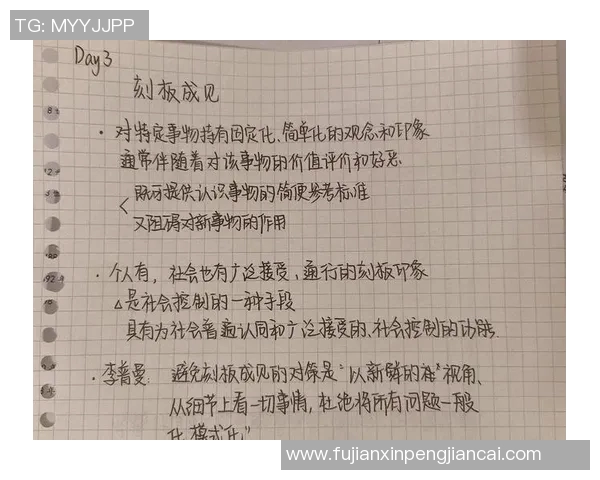 TG: MYYJJPP
Day 3
刻板成见
· 对特定事物持有固定化、简单化的观念和印象
通常伴随着对该事物的价值评价和好恶
既可提供认识事物的简便参考标准
又阻碍对新事物的作用
· 个人有, 社会也有广泛接受、通行的刻板印象
△是社会控制的一种手段
具有为社会普遍认同和广泛接受的、社会控制的功能.
· 李普曼: 避免刻板成见的对策是“以新鲜的 视角、
从细节上看一切事情, 杜绝将所有问题一般
化、模式化”
www.fujianxinpengjiancai.com